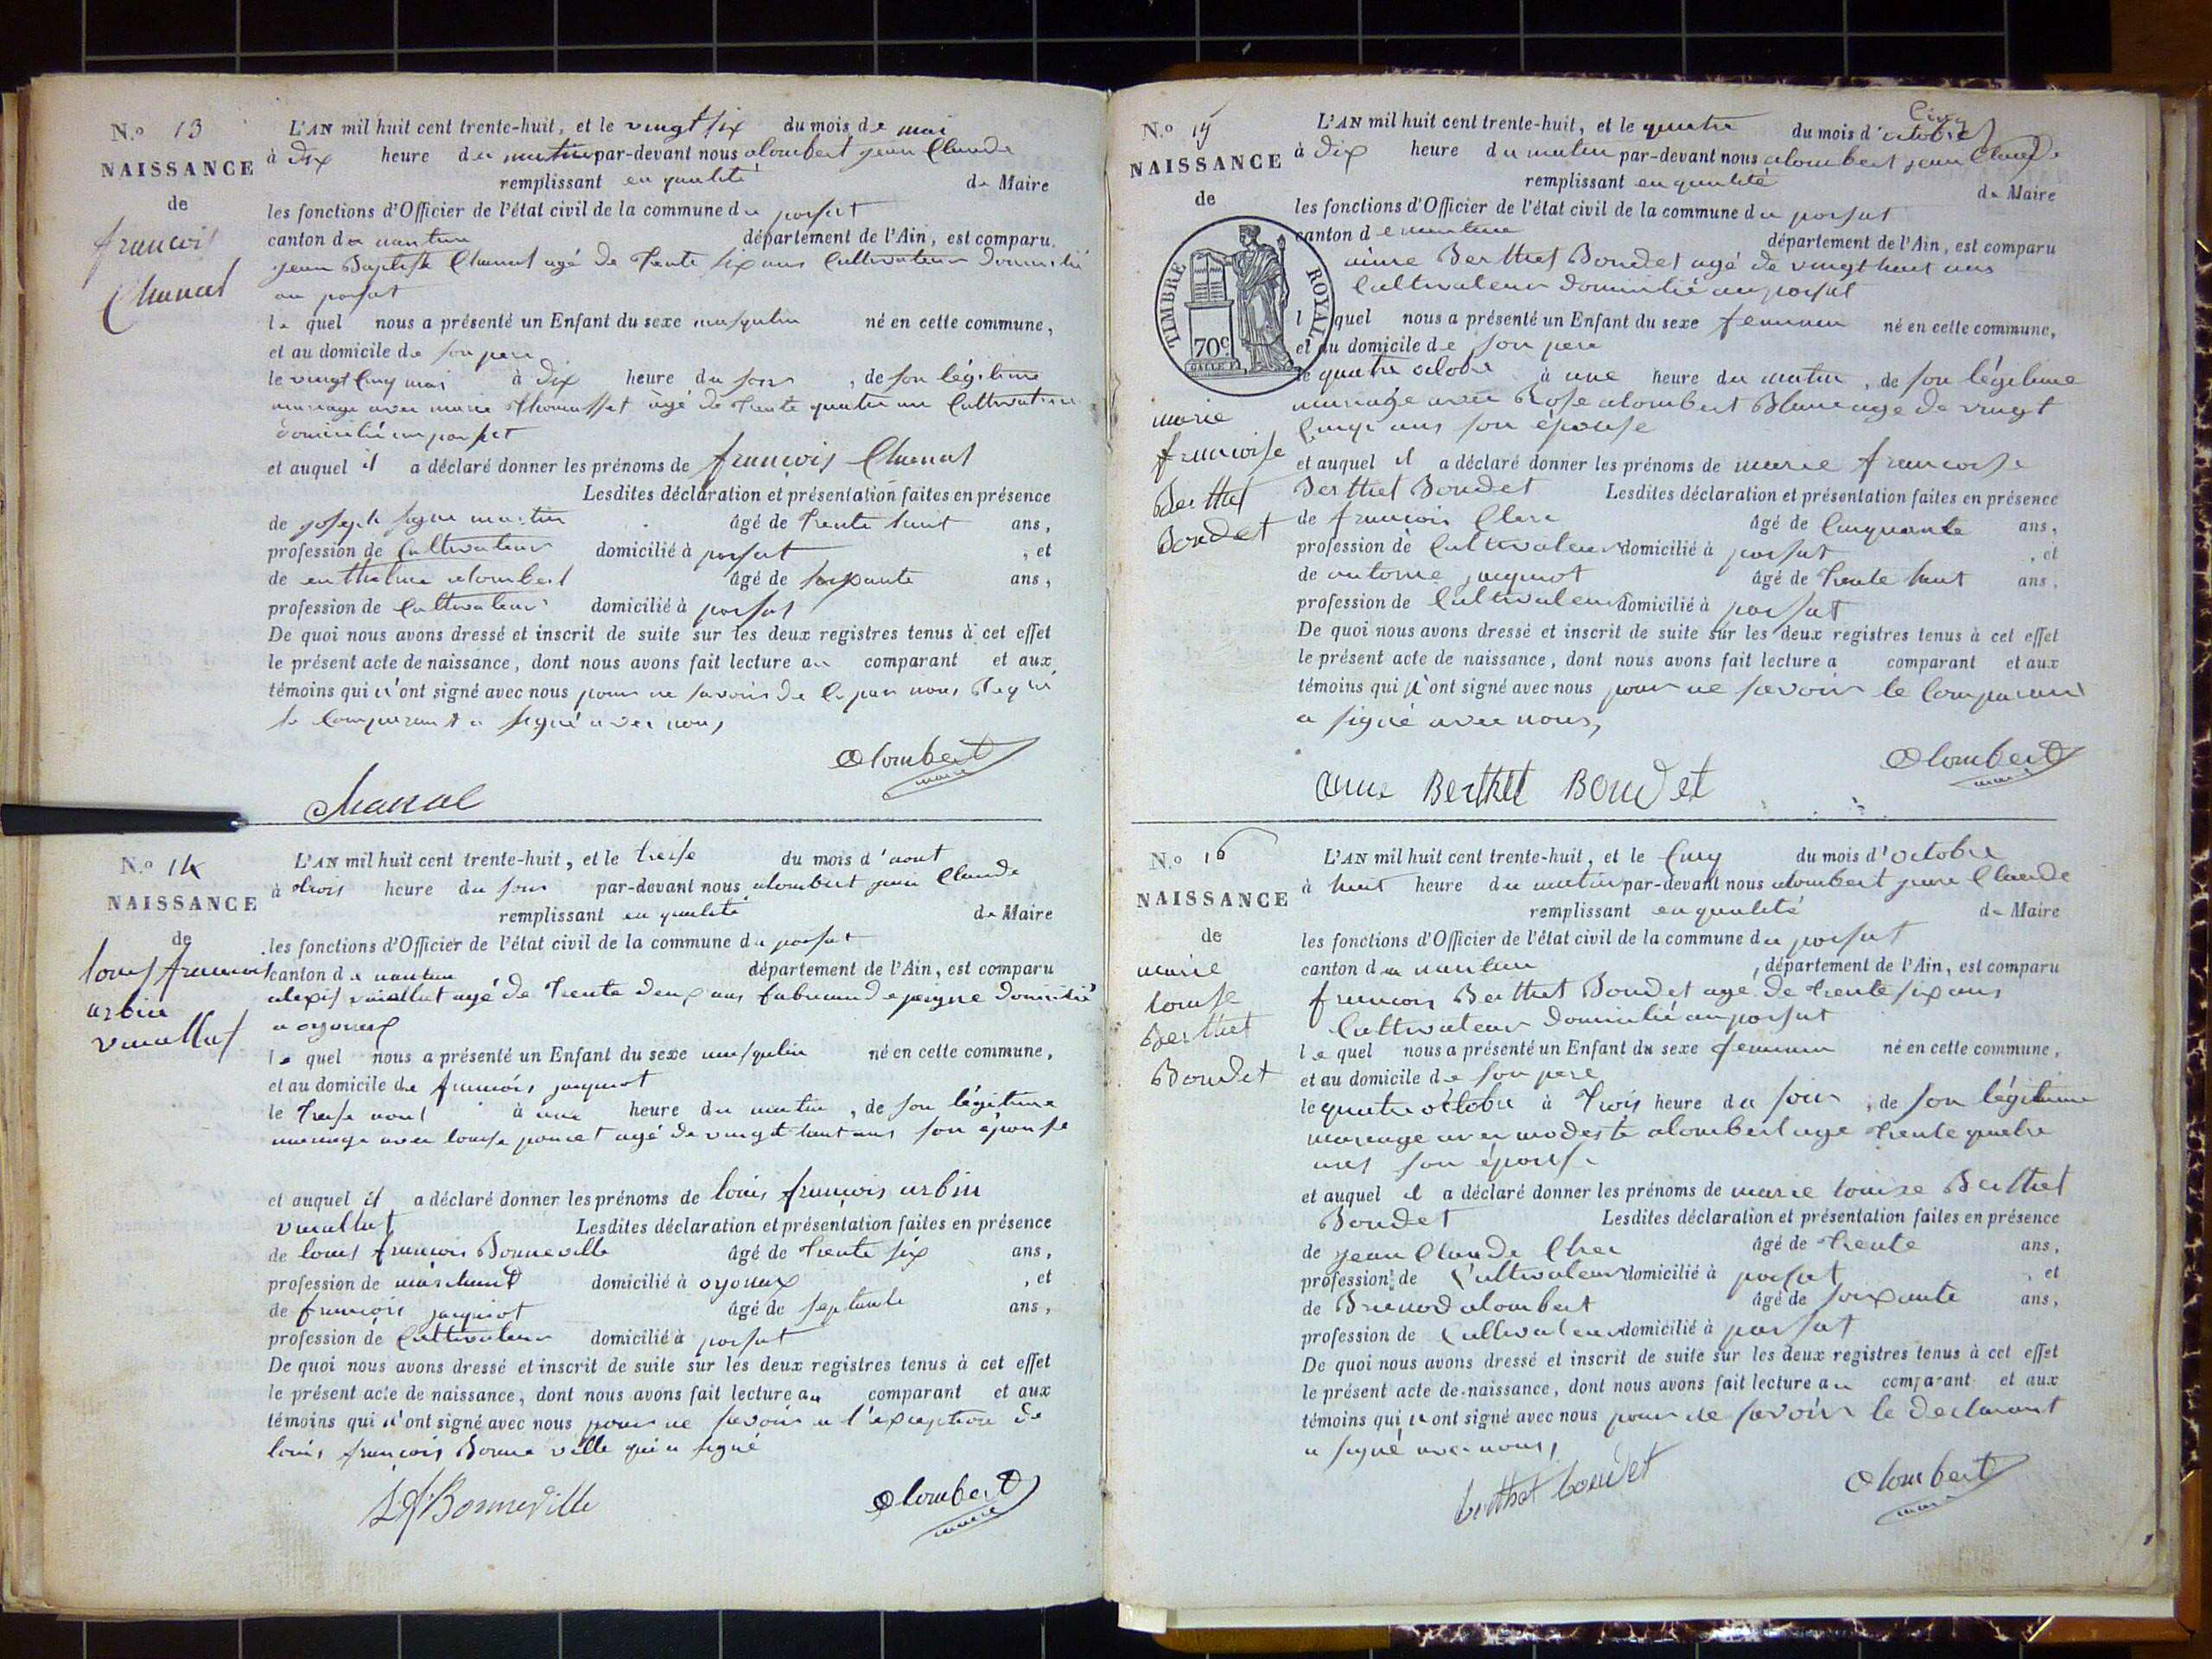 N.o 13
NAISSANCE
de
francois
Chanal
L'AN mil huit cent trente-huit, et le vingt six du mois de mai
à dix heure du matin par-devant nous alombert jean Claude
remplissant en qualité de Maire
les fonctions d'Officier de l'état civil de la commune du porsat
canton de nantua département de l'Ain, est comparu
jean Baptiste Chanal agé de trente six ans Cultivateur domicilié
au porsat
le quel nous a présenté un Enfant du sexe masqulin né en cette commune,
et au domicile de son pere
le vingt cinq mai à dix heure du soir, de son légitime
mariage avec marie thomasset agé de trente quatre ans Cultivatrice
domicilié au porsat
et auquel il a déclaré donner les prénoms de françois Chanal
Lesdites déclaration et présentation faites en présence
de joseph martin âgé de trente huit ans,
profession de Cultivateur domicilié à porsat, et
de alombert âgé de soixante ans,
profession de Cultivateur domicilié à porsat
De quoi nous avons dressé et inscrit de suite sur les deux registres tenus à cet effet
le présent acte de naissance, dont nous avons fait lecture au comparant et aux
témoins qui n'ont signé avec nous pour ne savoir de
le comparant a signé avec nous,
alombert
maire
Chanal
N.o 14
NAISSANCE
de
louis francois
arbin
vuallat
L'AN mil huit cent trente-huit, et le treise du mois d'aout
à trois heure du soir par-devant nous alombert jean Claude
remplissant en qualité de Maire
les fonctions d'Officier de l'état civil de la commune du porsat
canton de nantua département de l'Ain, est comparu
alexis vuallat agé de trente deux ans fabricand de peigne domicilié
a oyonax
le quel nous a présenté un Enfant du sexe masqulin né en cette commune,
et au domicile de francois jaquiot
le treise aout à une heure du matin, de son légitime
mariage avec louise poncet agé de vingt huit ans son épouse
et auquel il a déclaré donner les prénoms de louis françois arbin
vuallat Lesdites déclaration et présentation faites en présence
de louis francois Bonneville âgé de trente six ans,
profession de marchant domicilié à oyonax, et
de francois jaquiot âgé de septante ans,
profession de Cultivateur domicilié à porsat
De quoi nous avons dressé et inscrit de suite sur les deux registres tenus à cet effet
le présent acte de naissance, dont nous avons fait lecture au comparant et aux
témoins qui n'ont signé avec nous pour ne savoir a l'exception de
louis françois Bonne ville qui a signé
Bonneville alombert
maire
N.o 15
NAISSANCE
de
TIMBRE ROYAL
70c
marie
francoise
Berthet
Boudet
L'AN mil huit cent trente-huit, et le quatre du mois d'octobre
à dix heure du matin par-devant nous alombert jean Claude
remplissant en qualité de Maire
les fonctions d'Officier de l'état civil de la commune du porsat
canton de nantua département de l'Ain, est comparu
aime Berthet Boudet agé de vingt huit ans
Cultivateur domicilié au porsat
l quel nous a présenté un Enfant du sexe feminin né en cette commune,
et au domicile de son pere
le quatre octobre à une heure du matin, de son légitime
mariage avec Rose alombert Blanc age de vingt
cinq ans son épouse
et auquel il a déclaré donner les prénoms de marie francoise
Berthet Boudet Lesdites déclaration et présentation faites en présence
de francois Clerc âgé de Cinquante ans,
profession de Cultivateur domicilié à porsat, et
de antoine jaquiot âgé de trente huit ans,
profession de Cultivateur domicilié à porsat
De quoi nous avons dressé et inscrit de suite sur les deux registres tenus à cet effet
le présent acte de naissance, dont nous avons fait lecture a comparant et aux
témoins qui n'ont signé avec nous pour ne savoir le comparant
a signé avec nous,
alombert
maire
aime Berthet Boudet
N.o 16
NAISSANCE
de
marie
louise
Berthet
Boudet
L'AN mil huit cent trente-huit, et le Cinq du mois d'octobre
à huit heure du matin par-devant nous alombert jean Claude
remplissant en qualité de Maire
les fonctions d'Officier de l'état civil de la commune du porsat
canton de nantua, département de l'Ain, est comparu
francois Berthet Boudet age de trente six ans
Cultivateur domicilié au porsat
le quel nous a présenté un Enfant du sexe feminin né en cette commune,
et au domicile de son pere
le quatre octobre à trois heure du soir, de son légitime
mariage avec modeste alombert age trente quatre
ans son épouse
et auquel il a déclaré donner les prénoms de marie louise Berthet
Boudet Lesdites déclaration et présentation faites en présence
de jean Claude Clerc âgé de trente ans,
profession de Cultivateur domicilié à porsat, et
de alombert âgé de soixante ans,
profession de Cultivateur domicilié à porsat
De quoi nous avons dressé et inscrit de suite sur les deux registres tenus à cet effet
le présent acte de naissance, dont nous avons fait lecture au comparant et aux
témoins qui n'ont signé avec nous pour ne savoir le declarant
a signé avec nous,
berthet boudet alombert
maire